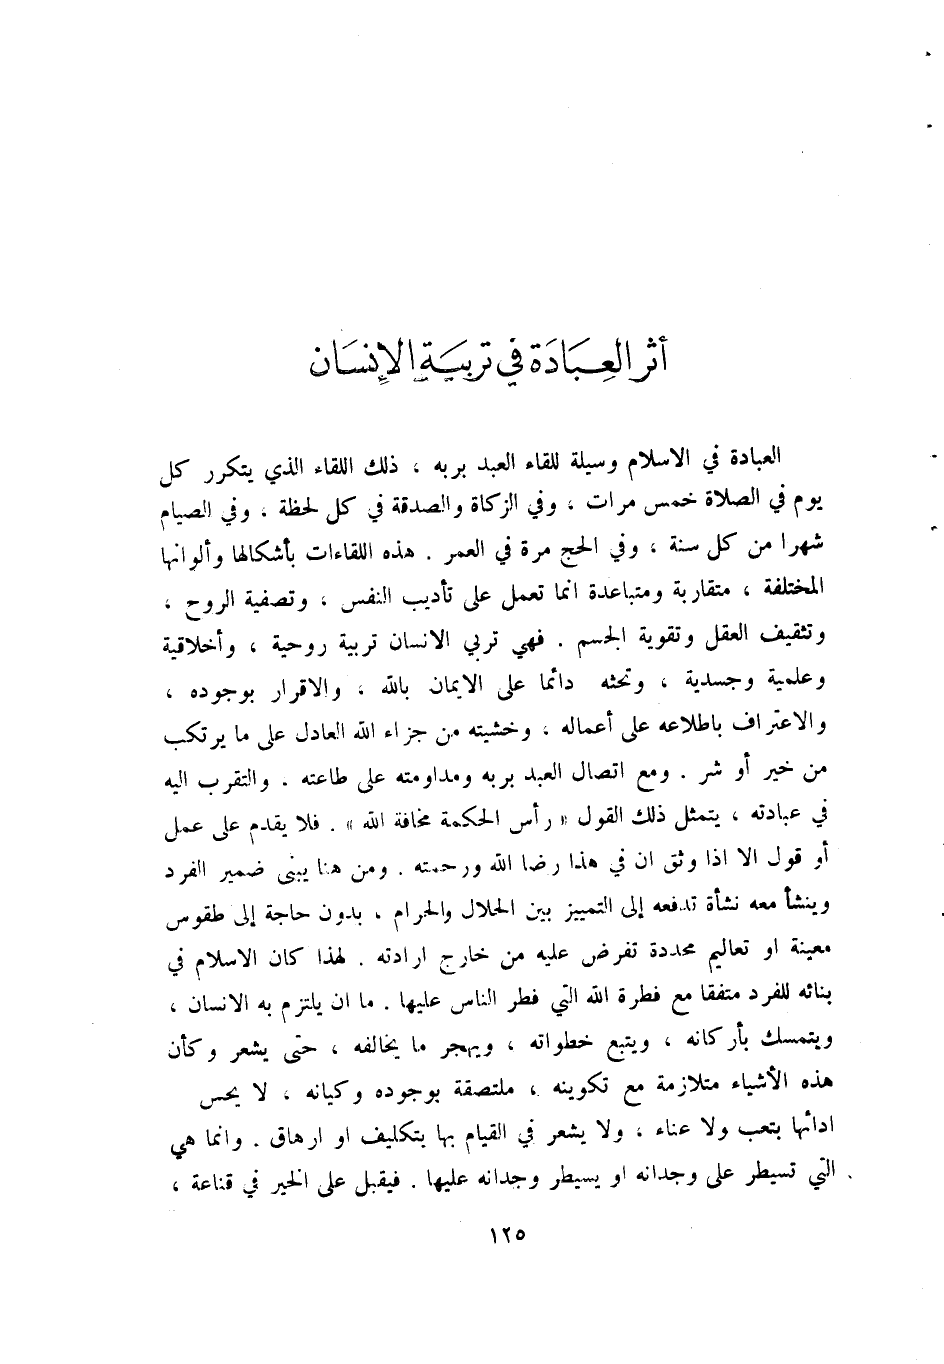 أثر العِبَادَة في تربيَةِ الإنسَان
العبادة في الاسلام وسيلة للقاء العبد بربه ، ذلك اللقاء الذي يتكرر كل
يوم في الصلاة خمس مرات ، وفي الزكاة والصدقة في كل لحظة ، وفي الصيام
شهرا من كل سنة ، وفي الحج مرة في العمر . هذه اللقاءات بأشكالها وألوانها
المختلفة ، متقاربة ومتباعدة انما تعمل على تأديب النفس ، وتصفية الروح ،
وتثقيف العقل وتقوية الجسم . فهي تربي الانسان تربية روحية ، وأخلاقية
وعلمية وجسدية ، وتحثه دائما على الايمان بالله ، والاقرار بوجوده ،
والاعتراف باطلاعه على أعماله ، وخشيته من جزاء الله العادل على ما يرتكب
من خير أو شر . ومع اتصال العبد بربه ومداومته على طاعته . والتقرب اليه
في عبادته ، يتمثل ذلك القول « رأس الحكمة مخافة الله » . فلا يقدم على عمل
أو قول الا اذا وثق ان في هذا رضا الله ورحمته . ومن هنا يبنى ضمير الفرد
وينشأ معه نشأة تدفعه إلى التمييز بين الحلال والحرام ، بدون حاجة إلى طقوس
معينة او تعاليم محددة تفرض عليه من خارج ارادته . لهذا كان الاسلام في
بنائه للفرد متفقا مع فطرة الله التي فطر الناس عليها . ما ان يلتزم به الانسان ،
ويتمسك بأركانه ، ويتبع خطواته ، ويهجر ما يخالفه ، حتى يشعر وكأن
هذه الأشياء متلازمة مع تكوينه ، ملتصقة بوجوده وكيانه ، لا يحس
ادائها بتعب ولا عناء ، ولا يشعر في القيام بها بتكليف او ارهاق . وانما هي
التي تسيطر على وجدانه او يسيطر وجدانه عليها . فيقبل على الخير في قناعة ،
١٢٥